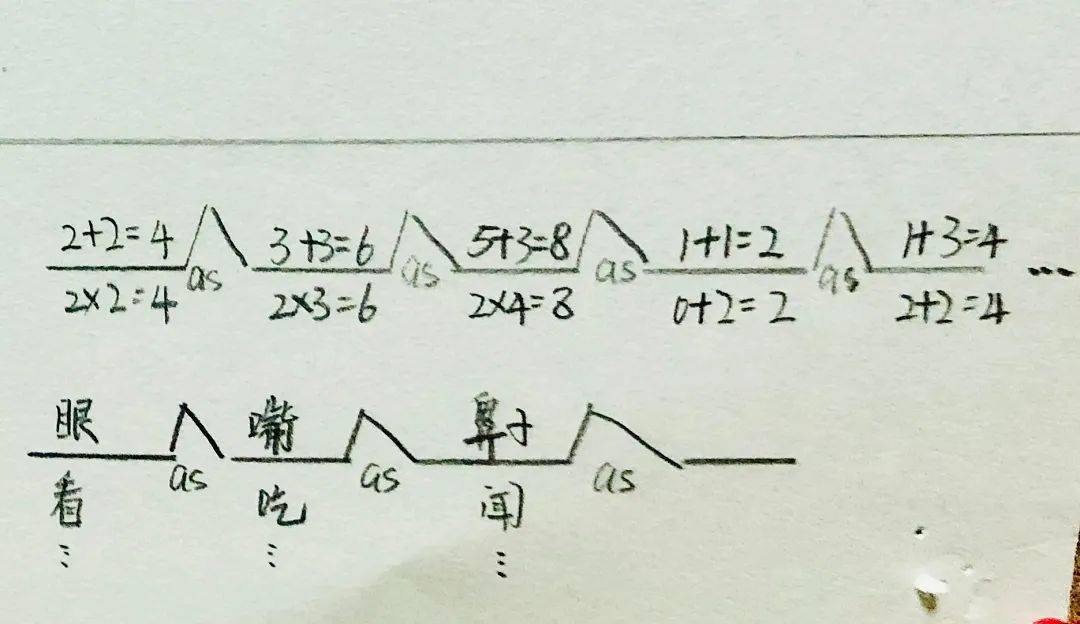 2+2=4 3+3=6 5+3=8 1+1=2 1+3=4 ...
as as as as
2×2=4 2×3=6 2×4=8 0+2=2 2+2=4
眼 嘴 鼻子
as as as
看 吃 闻
⋮ ⋮ ⋮